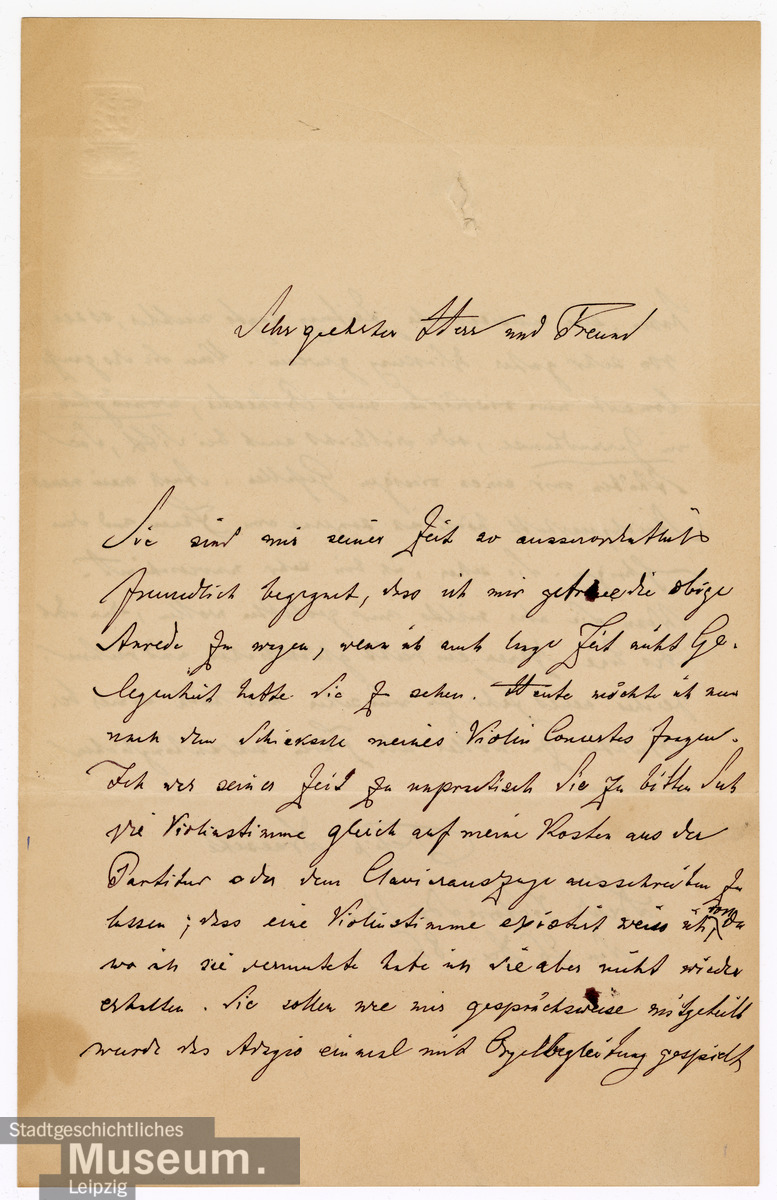 Sehr geehrter Herr und Freund
Sie sind mir seiner Zeit so ausserordentlich
freundlich begegnet, dass ich mir getraue die obige
Anrede zu wagen, wenn ich auch lange Zeit nicht Ge-
legenheit hatte Sie zu sehen. Heute möchte ich nun
nach dem Schicksale meines Violin Concertes fragen.
Ich war seiner Zeit zu unpractisch Sie zu bitten Sich
die Violinstimme gleich auf meine Kosten aus der
Partitur oder dem Clavierauszuge ausschreiben zu
lassen; dass eine Violinstimme existirt weiss ich, von da
wo ich sie vermutete habe ich sie aber nicht wieder
erhalten. Sie sollen wie mir gesprächsweise mitgeteilt
wurde das Adagio einmal mit Orgelbegleitung gespielt
Stadtgeschichtliches
Museum.
Leipzig